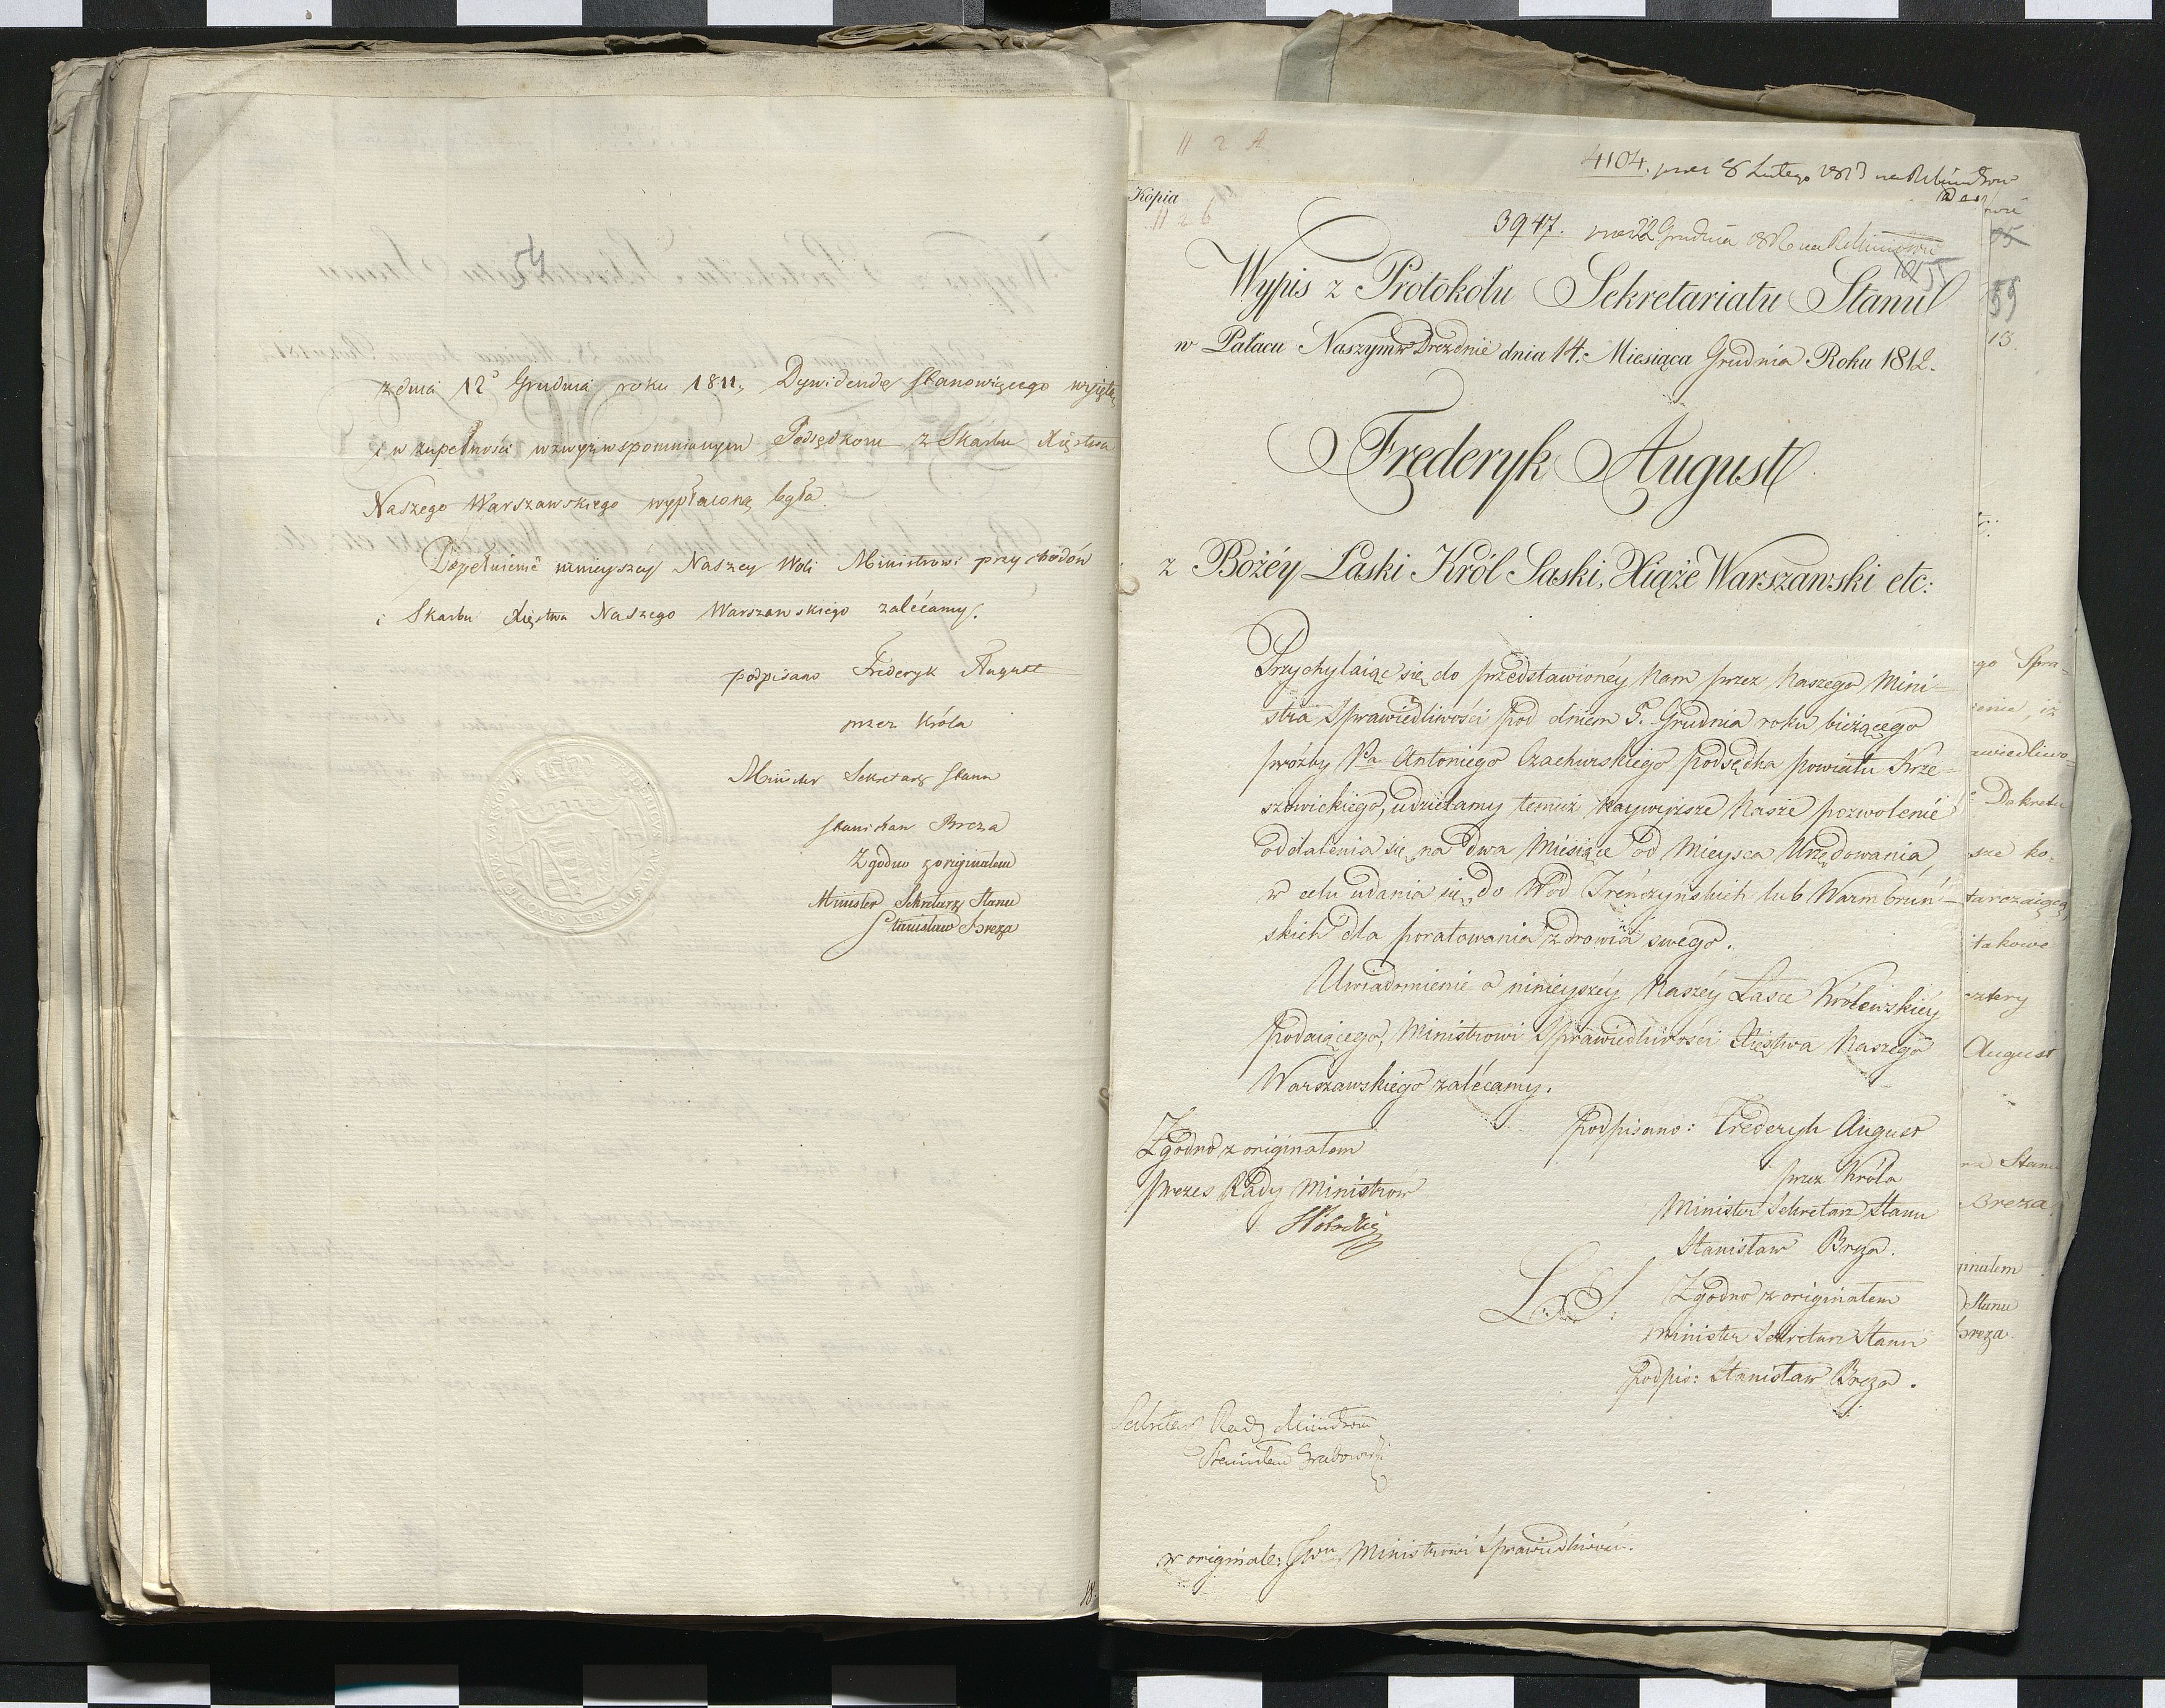 54
z dnia 12º Grudnia roku 1811, Dywidendę stanowiącego wziętą
i w zupełności wzwyż wspomnianym Podsędkom z Skarbu Xięstwa
Naszego Warszawskiego wypłaconą była.
Dopełnienie ninieyszey Naszey Woli Ministrowi przychodów
i Skarbu Xięstwa Naszego Warszawskiego zalécamy.
podpisano Frideryk August
przez Króla
Minister Sekretarz Stanu
Stanisław Breza
Zgodno z originałem
Minister Sekretarz Stanu
Stanisław Breza
18
112 A
4104. prez 8 Lutego 1813 na R Ministrow
Kopia
112 b
3947. prez 22 Grudnia 1812 na R Ministrow
101 55
Wypis z Protokołu Sekretariatu Stanu
w Pałacu Naszym w Dreźnie dnia 14. Miesiąca Grudnia Roku 1812.
Frederyk August
z Bożéy Łaski Król Saski, Xiąże Warszawski etc:
Przychylaiąc się do przedstawionéy Nam przez Naszego Mini-
stra Sprawiedliwości pod dniem 5. Grudnia roku bieżącego
prózby Pa Antoniego Czachurskiego podsędka powiatu Krze-
szowickiego, udzielamy temuż Naywyższe Nasze pozwolenie
oddalenia się na dwa Miesiące od Mieysca Urzędowania
w celu udania się do Wód Trenczyńskich lub Warmbruń-
skich dla poratowania zdrowia swego.
Uwiadomienie o ninieyszéy Naszéy Łasce Królewskiéy
podaiącego, Ministrowi Sprawiedliwości Xięstwa Naszego
Warszawskiego zalécamy.
Podpisano: Frederyk August
przez Króla
Minister Sekretarz Stanu
Stanisław Breza.
L. S. Zgodno z originałem
Minister Sekretarz Stanu
Podpis: Stanisław Breza.
Zgodno z originałem
Prezes Rady Ministrów
Sekretarz Rady Ministrow
Stanisław Grabowski
w originale: JWu Ministrowi Sprawiedliwości.
59
13.
ego Spra-
zenia, iż
awiedliwo-
Dekretu
sze ko-
tarczaiącą
takowe
cztery
August
Stanu
Breza
ginałem
Stanu
Breza.